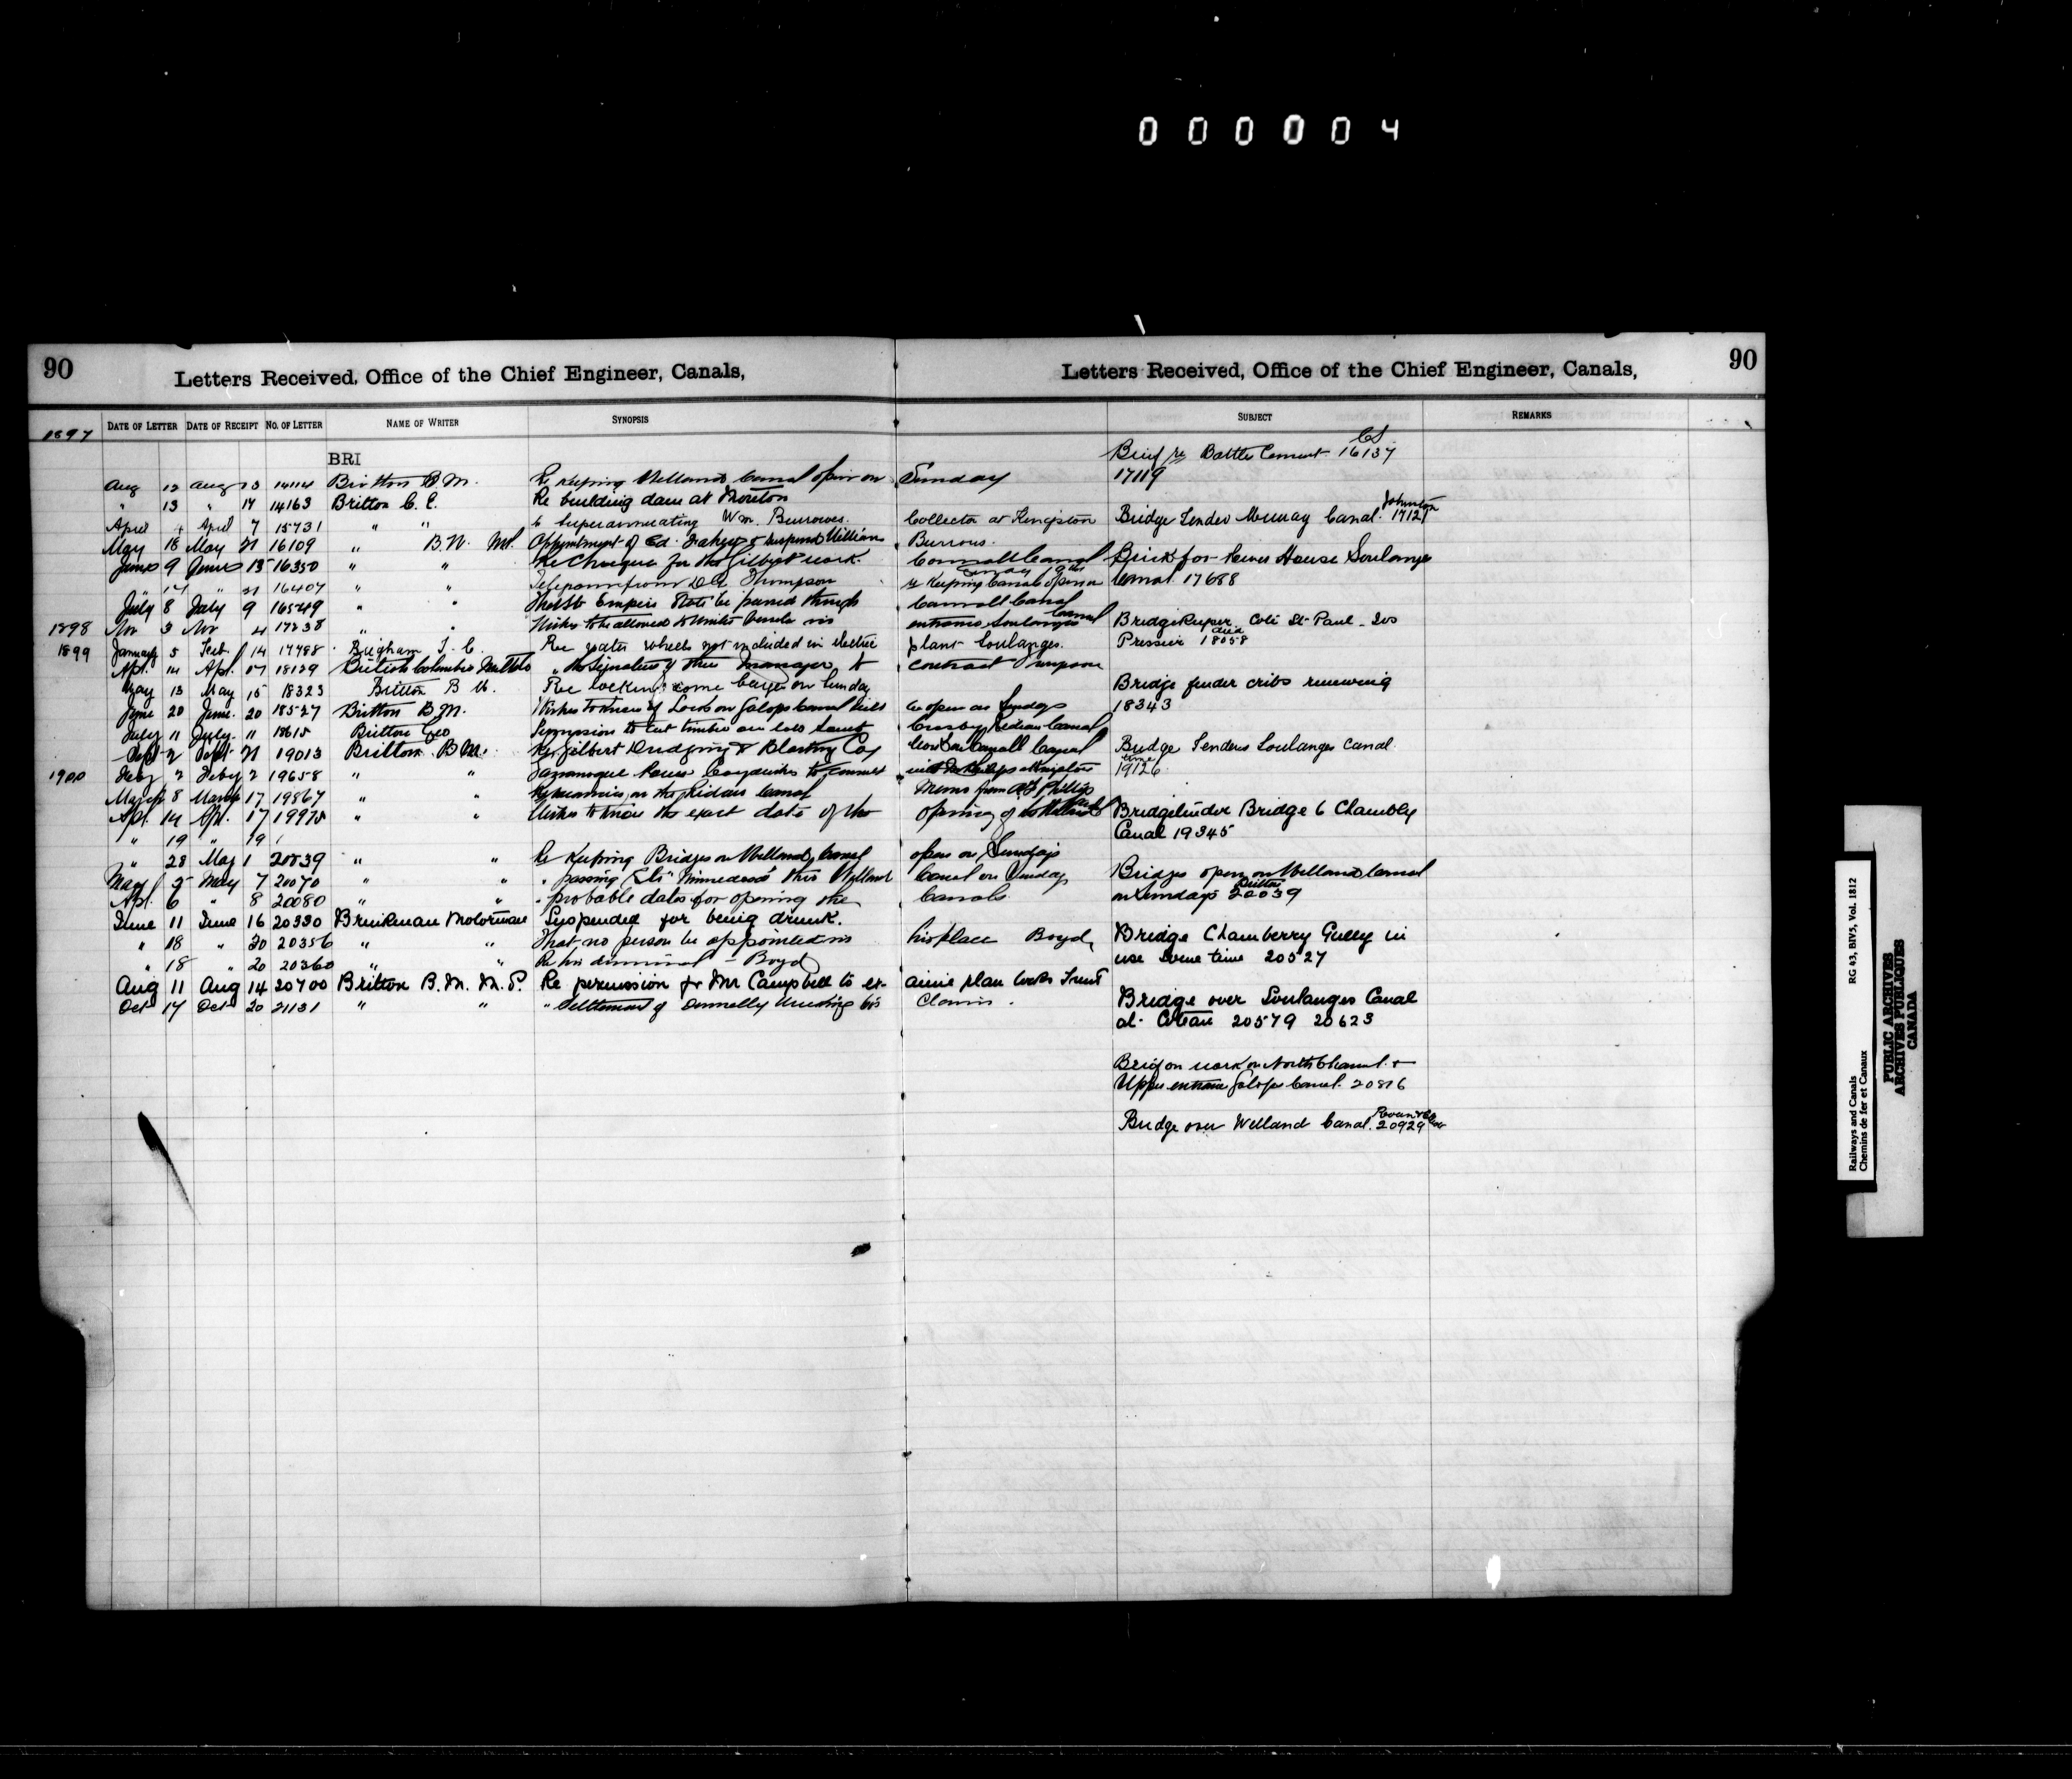 000004
90
Letters Received, Office of the Chief Engineer, Canals,
Letters Received, Office of the Chief Engineer, Canals,
90
1897 DATE OF LETTER DATE OF RECEIPT NO. OF LETTER NAME OF WRITER SYNOPSIS SUBJECT REMARKS
BRI
Brief re Battle Cement 16137
Aug 12 Aug 13 14114 Britton B.M. Re keeping Welland Canal open on Sunday 17119
" 13 " 17 14163 Britton C. E. Re building dam at Moreton
April 4 April 7 15731 " " superannuating Wm. Burrowes. Collector at Kingston Bridge Tender Murray Canal. Johnston 17121
May 18 May 21 16109 " B.M. Appointment of Ed. & suspend William Burrows.
June 9 June 13 16350 " " Re cheque for the Gilbert work. Cornwall Canal Brick for Power House Soulanges
" 14 " 21 16407 " " Telegram from Thompson re keeping Canal open on Sunday Canal. 17688
July 8 July 9 16549 " " That Empire State be passed through Cornwall Canal
1898 Nov 3 Nov 4 17238 " " Wishes to be allowed to winter vessels in entrance Soulanges Canal Bridge Keeper Cote St Paul
1899 January 5 Feb. 14 17988 Brigham T. C. Re water wheels not included in electric plant Soulanges. Pressier died 18058
Apl. 14 Apl. 17 18129 British Columbia " the signature of their manager to contract
May 13 May 15 18323 Britton B M. Re locking some barges on Sunday Bridge fender cribs renewing
June 20 June. 20 18527 Britton B.M. Wishes to know if Locks on Galops Canal will be open on Sundays 18343
July 11 July. 11 18615 Britton Geo Permission to cut timber on lots Crosby, Rideau Canal
Sept 2 Sept 21 19013 Britton. B.M. Re Gilbert Dredging & Blasting Coy Cornwall Canal Bridge Tenders Soulanges Canal
1900 Feby 2 Feby 2 19658 " " Gananoque Power Coy wishes to connect time 19126
March 8 March 17 19867 " " on the Rideau Canal Memo from A.T. Phillips
Apl. 14 Apl. 17 19975 " " Wishes to know the exact date of the opening of Bridgetender Bridge 6 Chambly
" 19 " 19 Canal 19345
" 28 May 1 20039 " " Re Keeping Bridges on Welland Canal open on Sundays
May 5 May 7 20070 " " " passing Str "Minnedosa" thro Welland Canal on Sunday Bridges open on Welland Canal
Apl. 6 " 8 20080 " " " probable dates for opening the Canals. on Sundays Britton 20039
June 11 June 16 20330 Brinkman Motorman Suspended for being drunk.
" 18 " 20 20356 " " That no person be appointed in his place Boyd, Bridge Chamberry Gully in
" 18 " 20 20360 " " Re his dismissal - Boyd use some time 20527
Aug 11 Aug 14 20700 Britton B. M. M. P. Re permission for Mr Campbell to examine plan locks Trent
Oct 17 Oct 20 21131 " " " Settlement of Donnelly Wrecking Co's Claims. Bridge over Soulanges Canal
at Coteau 20579 20623
Brief on work on North Channel &
Upper entrance Galops Canal. 20816
Bridge over Welland Canal. 20929
Railways and Canals RG 43, BIV5, Vol. 1812
Chemins de fer et Canaux
PUBLIC ARCHIVES
ARCHIVES PUBLIQUES
CANADA